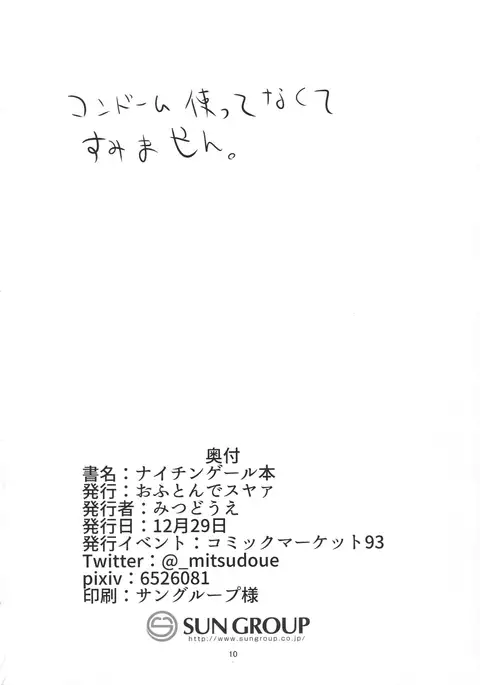 コンドーム使ってなくて
すみません。
奥付
書名：ナイチンゲール本
発行：おふとんでスヤァ
発行者：みつどうえ
発行日：12月29日
発行イベント：コミックマーケット93
Twitter：@_mitsudoue
pixiv：6526081
印刷：サングループ様
SUN GROUP
http://www.sungroup.co.jp/
10